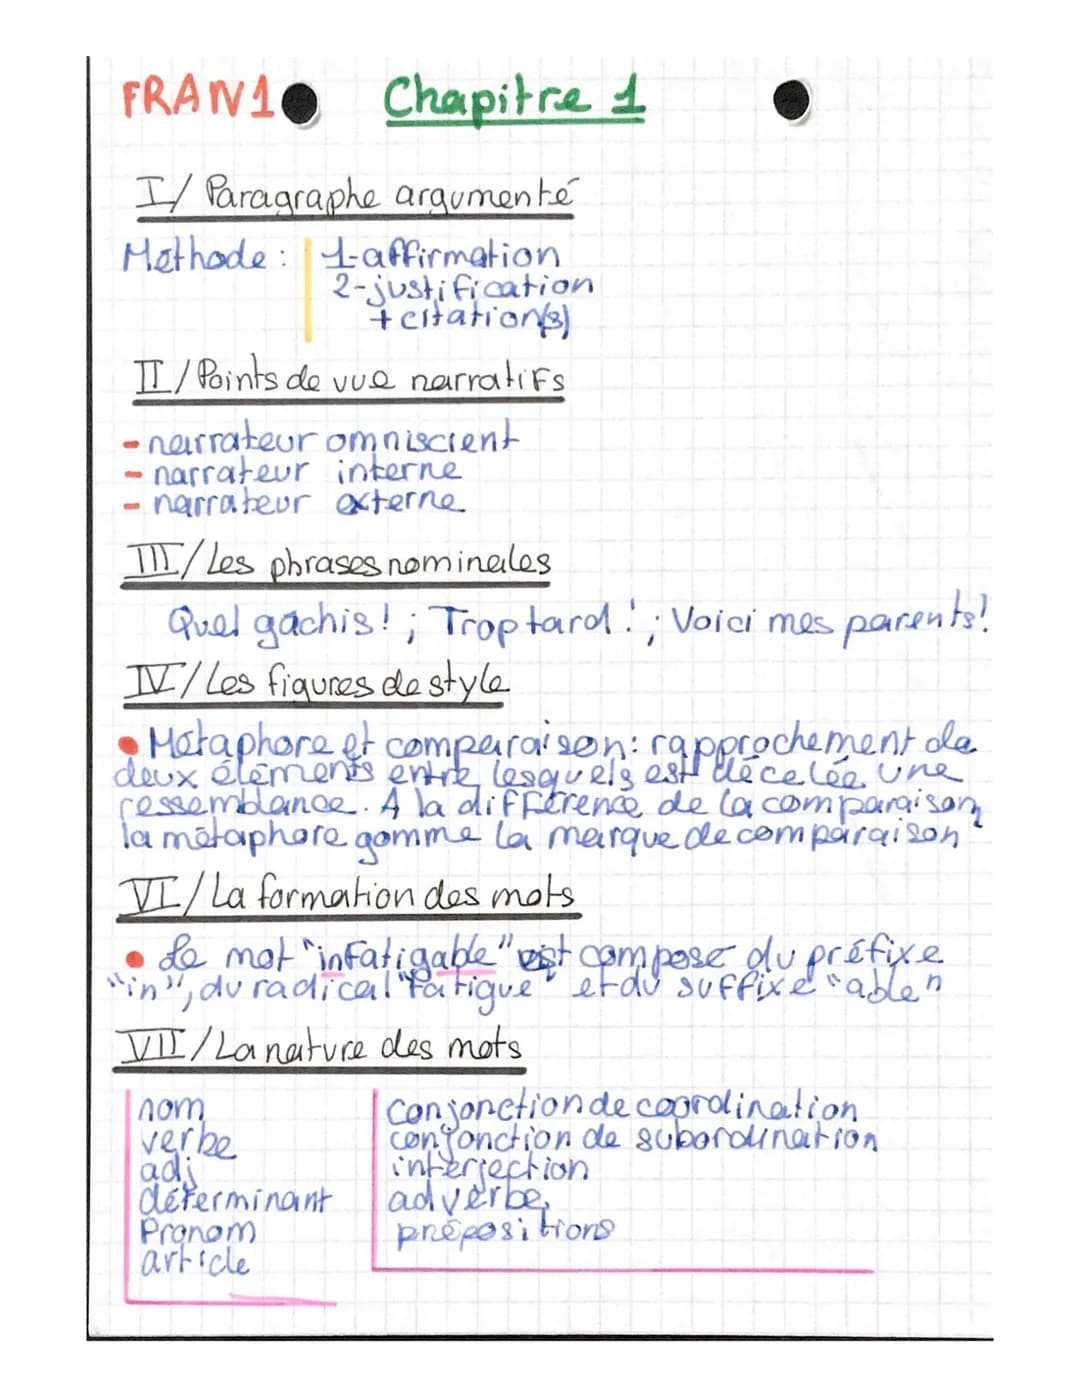 FRAN1 Chapitre 1
I/ Paragraphe argumenté
Méthode : 1-affirmation
2-justification
+ citation(s)
II/ Points de vue narratifs
- narrateur omniscient
- narrateur interne
- narrateur externe
III/ Les phrases nominales
Quel gachis! ; Trop tard! ; Voici mes parents!
IV/ Les figures de style
• Métaphore et comparaison: rapprochement de
deux éléments entre lesquels est décelée une
ressemblance. A la différence de la comparaison,
la métaphore gomme la marque de comparaison
VI/ La formation des mots
• Le mot "infatigable" est composé du préfixe
"in", du radical "fatigue" et du suffixe "able"
VII/ La nature des mots
nom
verbe
adj
déterminant
Pronom
article
conjonction de coordination
conjonction de subordination
interjection
adverbe,
prépositions